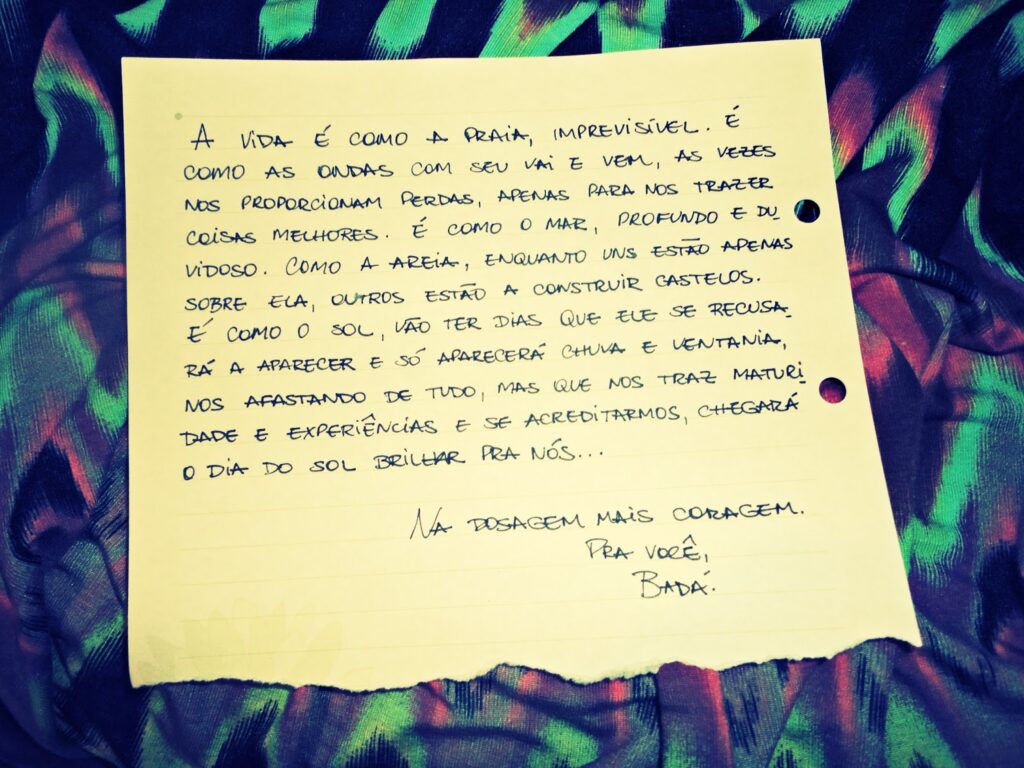 A VIDA É COMO A PRAIA, IMPREVISÍVEL. É
COMO AS ONDAS COM SEU VAI E VEM, AS VEZES
NOS PROPORCIONAM PERDAS, APENAS PARA NOS TRAZER
COISAS MELHORES. É COMO O MAR, PROFUNDO E DU
VIDOSO. COMO A AREIA, ENQUANTO UNS ESTÃO APENAS
SOBRE ELA, OUTROS ESTÃO A CONSTRUIR CASTELOS.
É COMO O SOL, VÃO TER DIAS QUE ELE SE RECUSA-
RÁ A APARECER E SÓ APARECERÁ CHUVA E VENTANIA,
NOS AFASTANDO DE TUDO, MAS QUE NOS TRAZ MATURI
DADE E EXPERIÊNCIAS E SE ACREDITARMOS, CHEGARÁ
O DIA DO SOL BRILHAR PRA NÓS...
NA DOSAGEM MAIS CORAGEM.
PRA VOCÊ,
BADÁ.